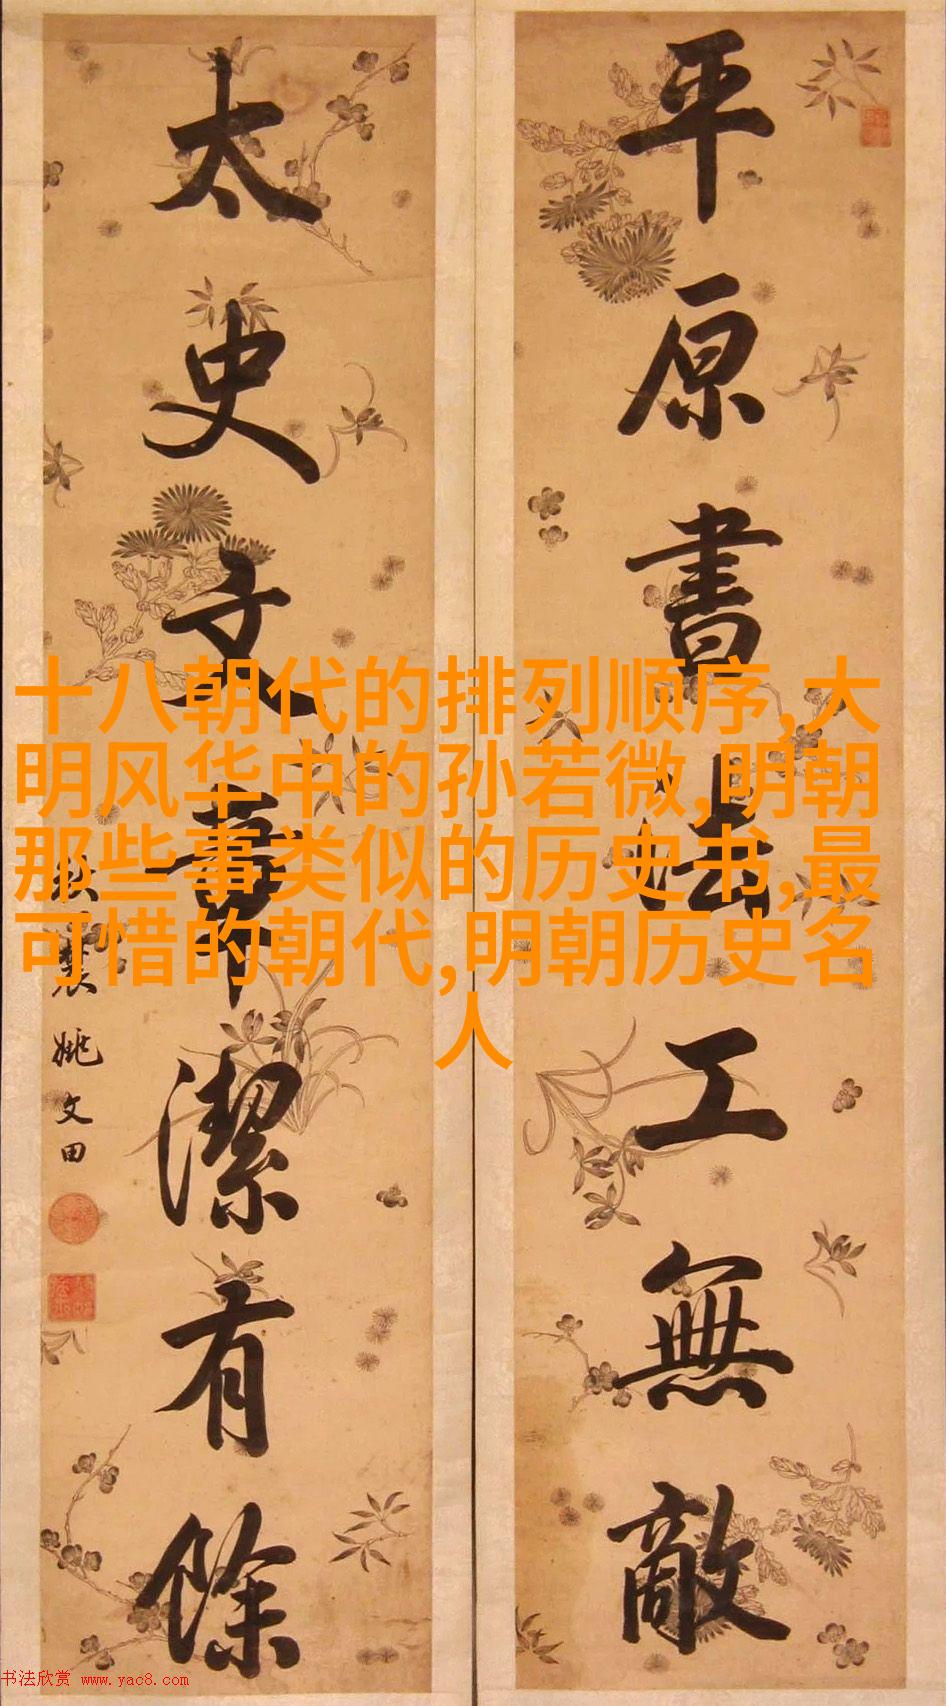 平原書法工無敵
太史文章潔有餘
秋農姚文田
十八朝代的排列顺序,大
明风华中的孙若微,明朝
那些事类似的历史书,最
可惜的朝代,明朝历史名
人
书法欣赏 www.yac8.com